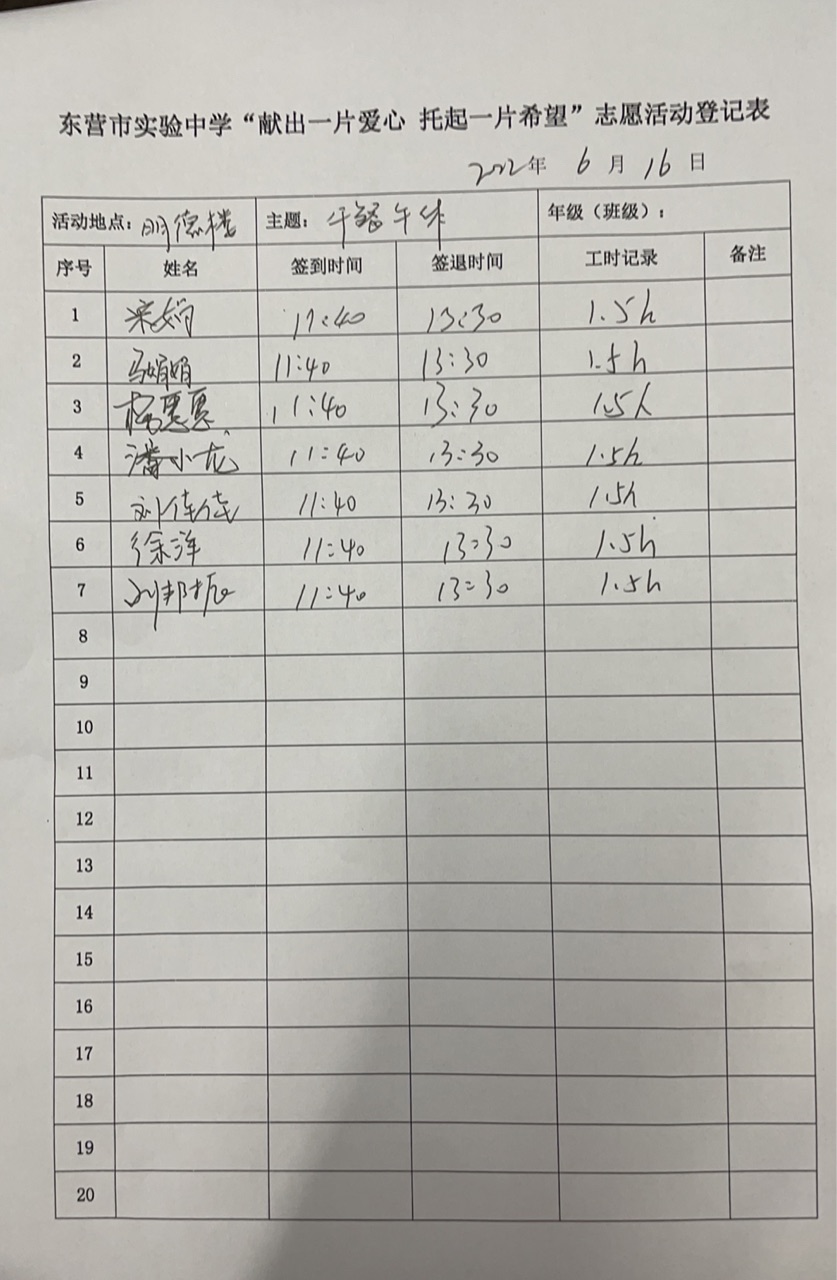 东营市实验中学“献出一片爱心 托起一片希望”志愿活动登记表
2022年 6月16日
活动地点：明德楼 主题：午餐午休 年级（班级）：
序号 姓名 签到时间 签退时间 工时记录 备注
1 宋娟 11:40 13:30 1.5h
2 马娟娟 11:40 13:30 1.5h
3 杨惠惠 11:40 13:30 1.5h
4 潘小龙 11:40 13:30 1.5h
5 刘倩倩 11:40 13:30 1.5h
6 徐洋 11:40 13:30 1.5h
7 刘邦振 11:40 13:30 1.5h
8
9
10
11
12
13
14
15
16
17
18
19
20